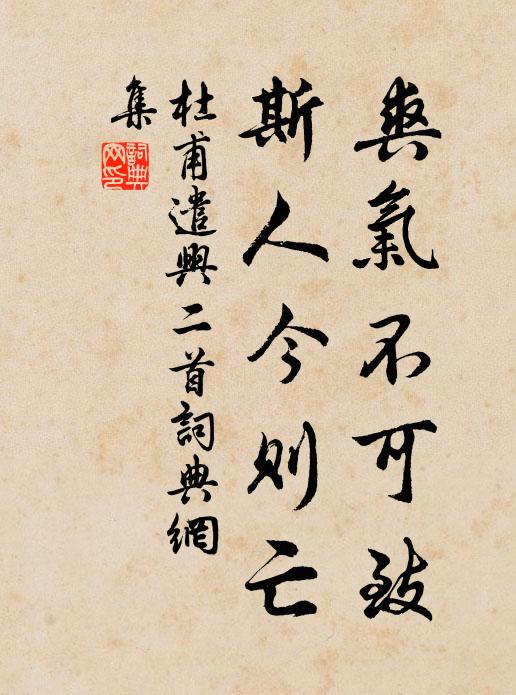 爽氣不可致
斯人今則亡
杜甫遣興二首詞典網
集
詞典
网印